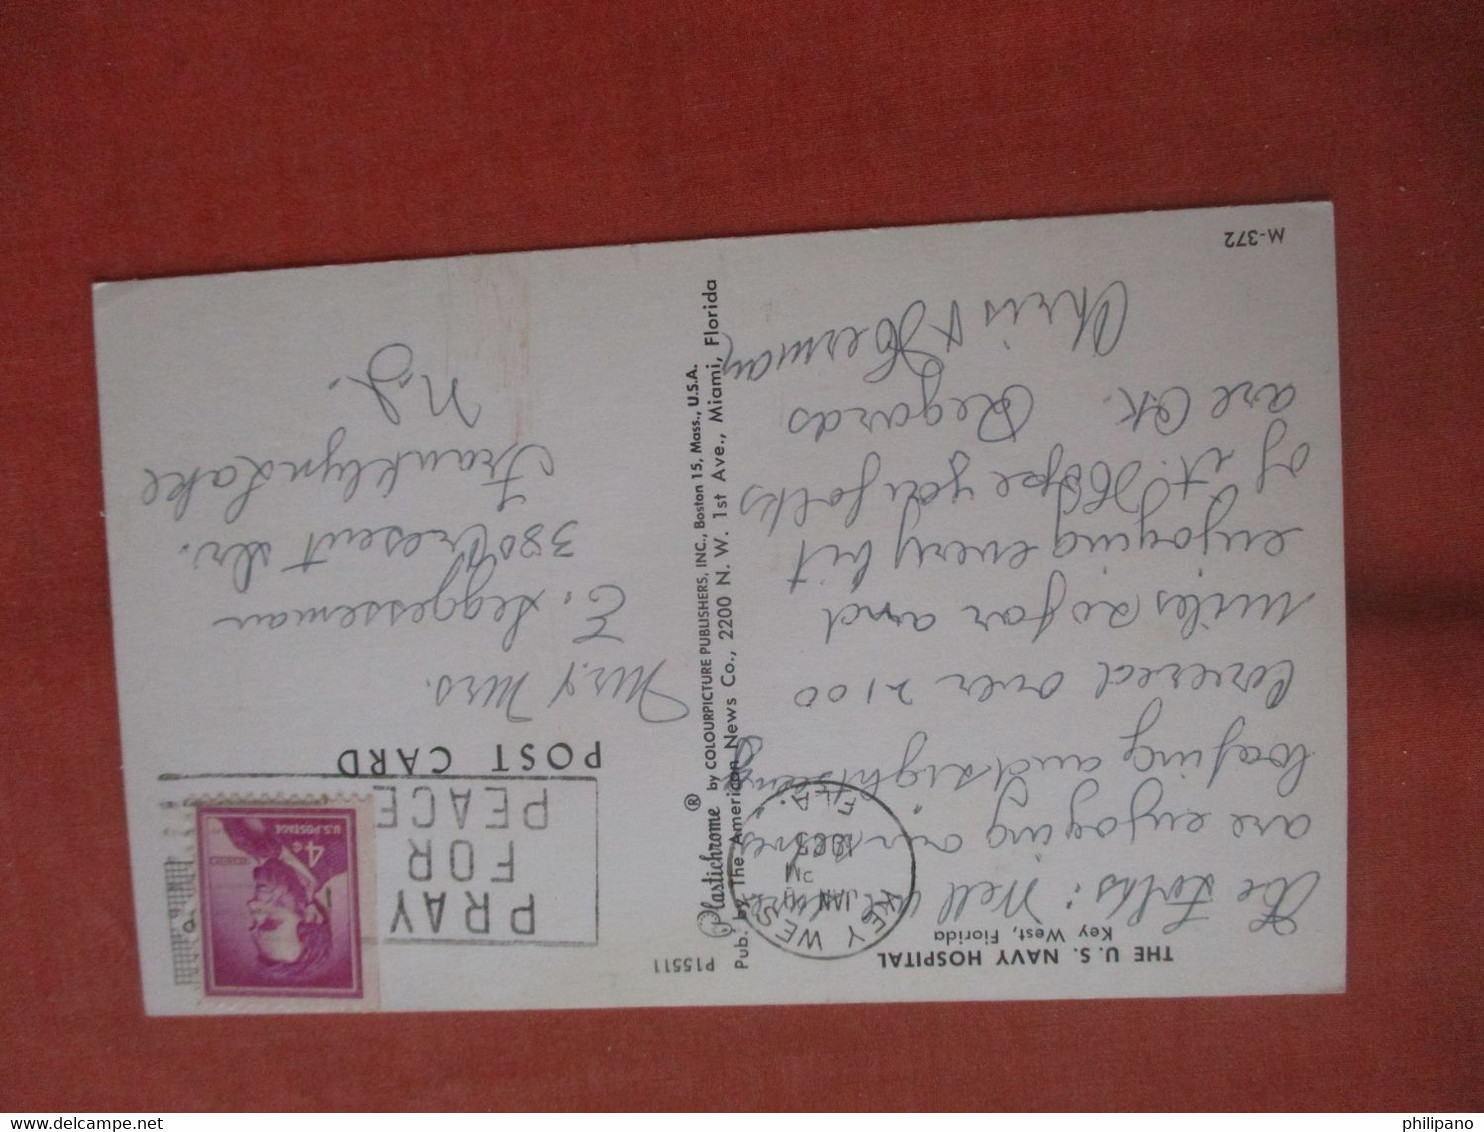 THE U. S. NAVY HOSPITAL
Key West, Florida
Folks: Well we
are enjoying ourselves
loafing and sightseeing
Covered over 2100
miles so far and
enjoying every bit
of it. Hope you folks
are OK. Regards
Chris & Herman
M-372
P15511
Plastichrome ® by COLOURPICTURE PUBLISHERS, INC., Boston 15, Mass., U.S.A.
Pub. by The American News Co., 2200 N. W. 1st Ave., Miami, Florida
KEY WEST
JAN
PM
FLA.
PRAY
FOR
PEACE
U.S. POSTAGE
4c
POST CARD
Mr. & Mrs.
E. Seggesseman
380 Cresent Dr.
Franklyn Lake
N.J.
philipano